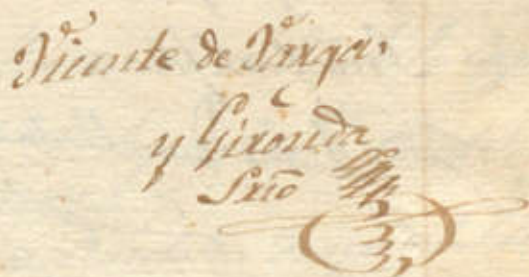 Vicente de Varga,
y Gironda
Srio